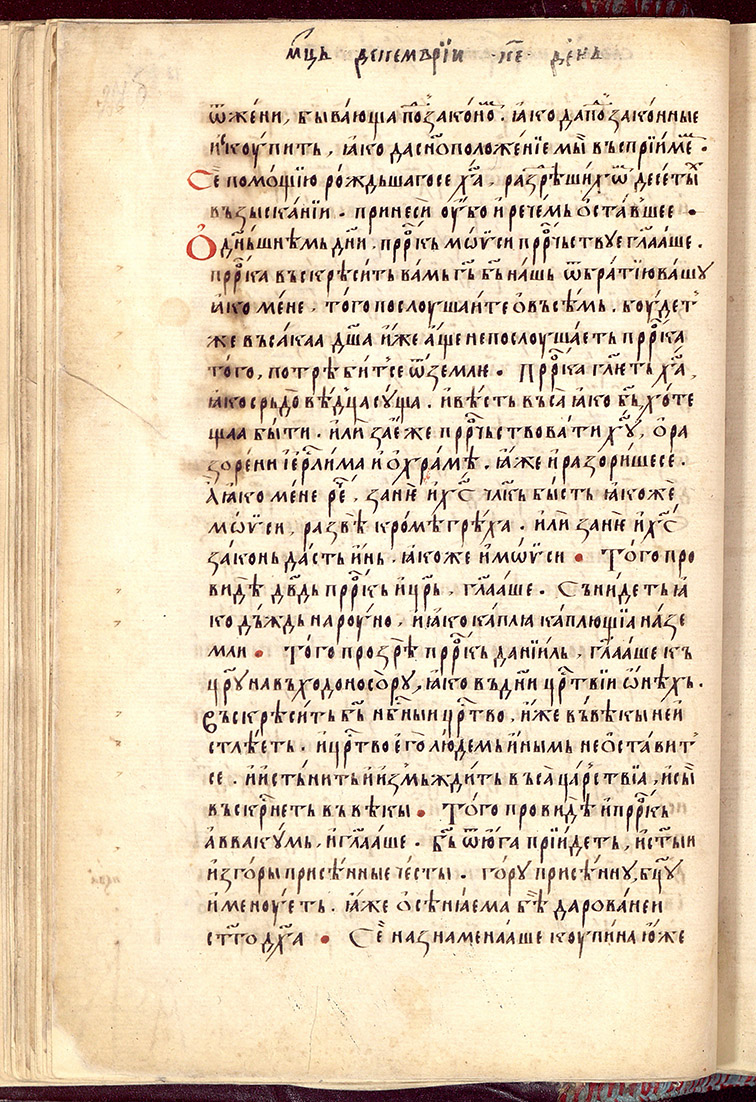 мⷭ҇ць декемврїи ·к҃е· де́нь
ѿ жени, бывающа поⷣзако́ноⷨ. ꙗко да поⷣзако́нные
и҆скоупить, ꙗко да сн҃ополо́женїе мы̀ въспрїи́меⷨ.
Се̏ помо́щїю ро́ждьшагосе хаⷭ҇, разрѣ́шихѿ десеты́иⷯ
възыска́нїи. принеси̏ оу҆́бо и҆ рече́мь ѻ҆ста́вшее.
Ѻ҆ дн҃ьшнѣ́мь дн҃и. прⷪ҇ркь мѡѵ̈си прⷪ҇рчьствуе гл҃ааше.
прⷪ҇рка въскрѣси́ть ва́мь гь҃ бь҃ на́шь ѿ бра́тїю ва́шу
ꙗко ме́не, то́го послоуша́ите ѻ въсе́мь. боу́детⸯ
же въса́каа дш҃а и҆́же а҆́ще не послоуша́еть прⷪ҇рка
то́го, потрѣби́тⸯсе ѿ земле́ю. Прⷪ҇рка гл҃ють хаⷭ҇,
ꙗко срь́дове́дца су́ща. и҆ вѣ́сть въса̀ ꙗко бь҃, хо́те
щаа бы́ти. и҆ли̏ зае҆́же прⷪ҇рчьствова́ти хоуⷭ҇, ѻ ра
зоре́ни і҆ерⷭ҇лима и ѻ хра́мѣ. ꙗже и разори́шесе.
А҆ ꙗко ме́не реⷱ҇, зане̏ и҆ хⷭ҇ чл҃кь бы́сть ꙗко же̏
мѡѵ̈си, развѣ̀ кро́мѣ грѣ́ха. и҆ли̏ зане̏ и҆ хⷭ҇
зако́нь да́сть и҆нь. ꙗко же и҆ мѡѵ̈си • То́го про
ви́дѣ дв҃дь прⷪ҇ркь и҆ цр҃ь, гл҃ааше. Съни́деть ꙗ
ко дъ́ждь на роу́но, и ꙗко ка́плꙗ ка́плющїа на зе
мли • То́го прозрѣ̀ прⷪ҇ркь данїи́ль, гл҃ааше къ
цр҃ꙋ навъходоносо́ру, ꙗко въ дн҃и црⷭ҇твїи ѡ҆нѣ́хь.
въскрѣси́ть бь҃ нбⷭ҇ныи црⷭ҇тво, и҆́же въ вѣ́кы не и
стлѣ́еть. и҆ црⷭ҇тво е҆го̀ лю́демь и҆нымь не ѻ҆ста́вит
се. и҆ и҆стъ́нить и҆ и҆змьжди́ть въса̀ ца́рⷭ҇твїа, и сы̀
въскрⷭ҇неть въ вѣ́кы • То́го прови́дѣ и҆ прⷪ҇ркь
аввакꙋ́мь, и гл҃ааше. бь҃ ѿ ю҆́га прїи́деть, и҆ ст҃ыи
и҆з горы̀ присѣ́нные че́сты. го́ру присѣ́нну, бцⷣу
и҆меноу́еть. ꙗже ѻ҆сѣнꙗ́ема бѣ̀ дарова́неи
ст҃го дх҃а • Се̏ на знамена́аше коупи́на ю҆же